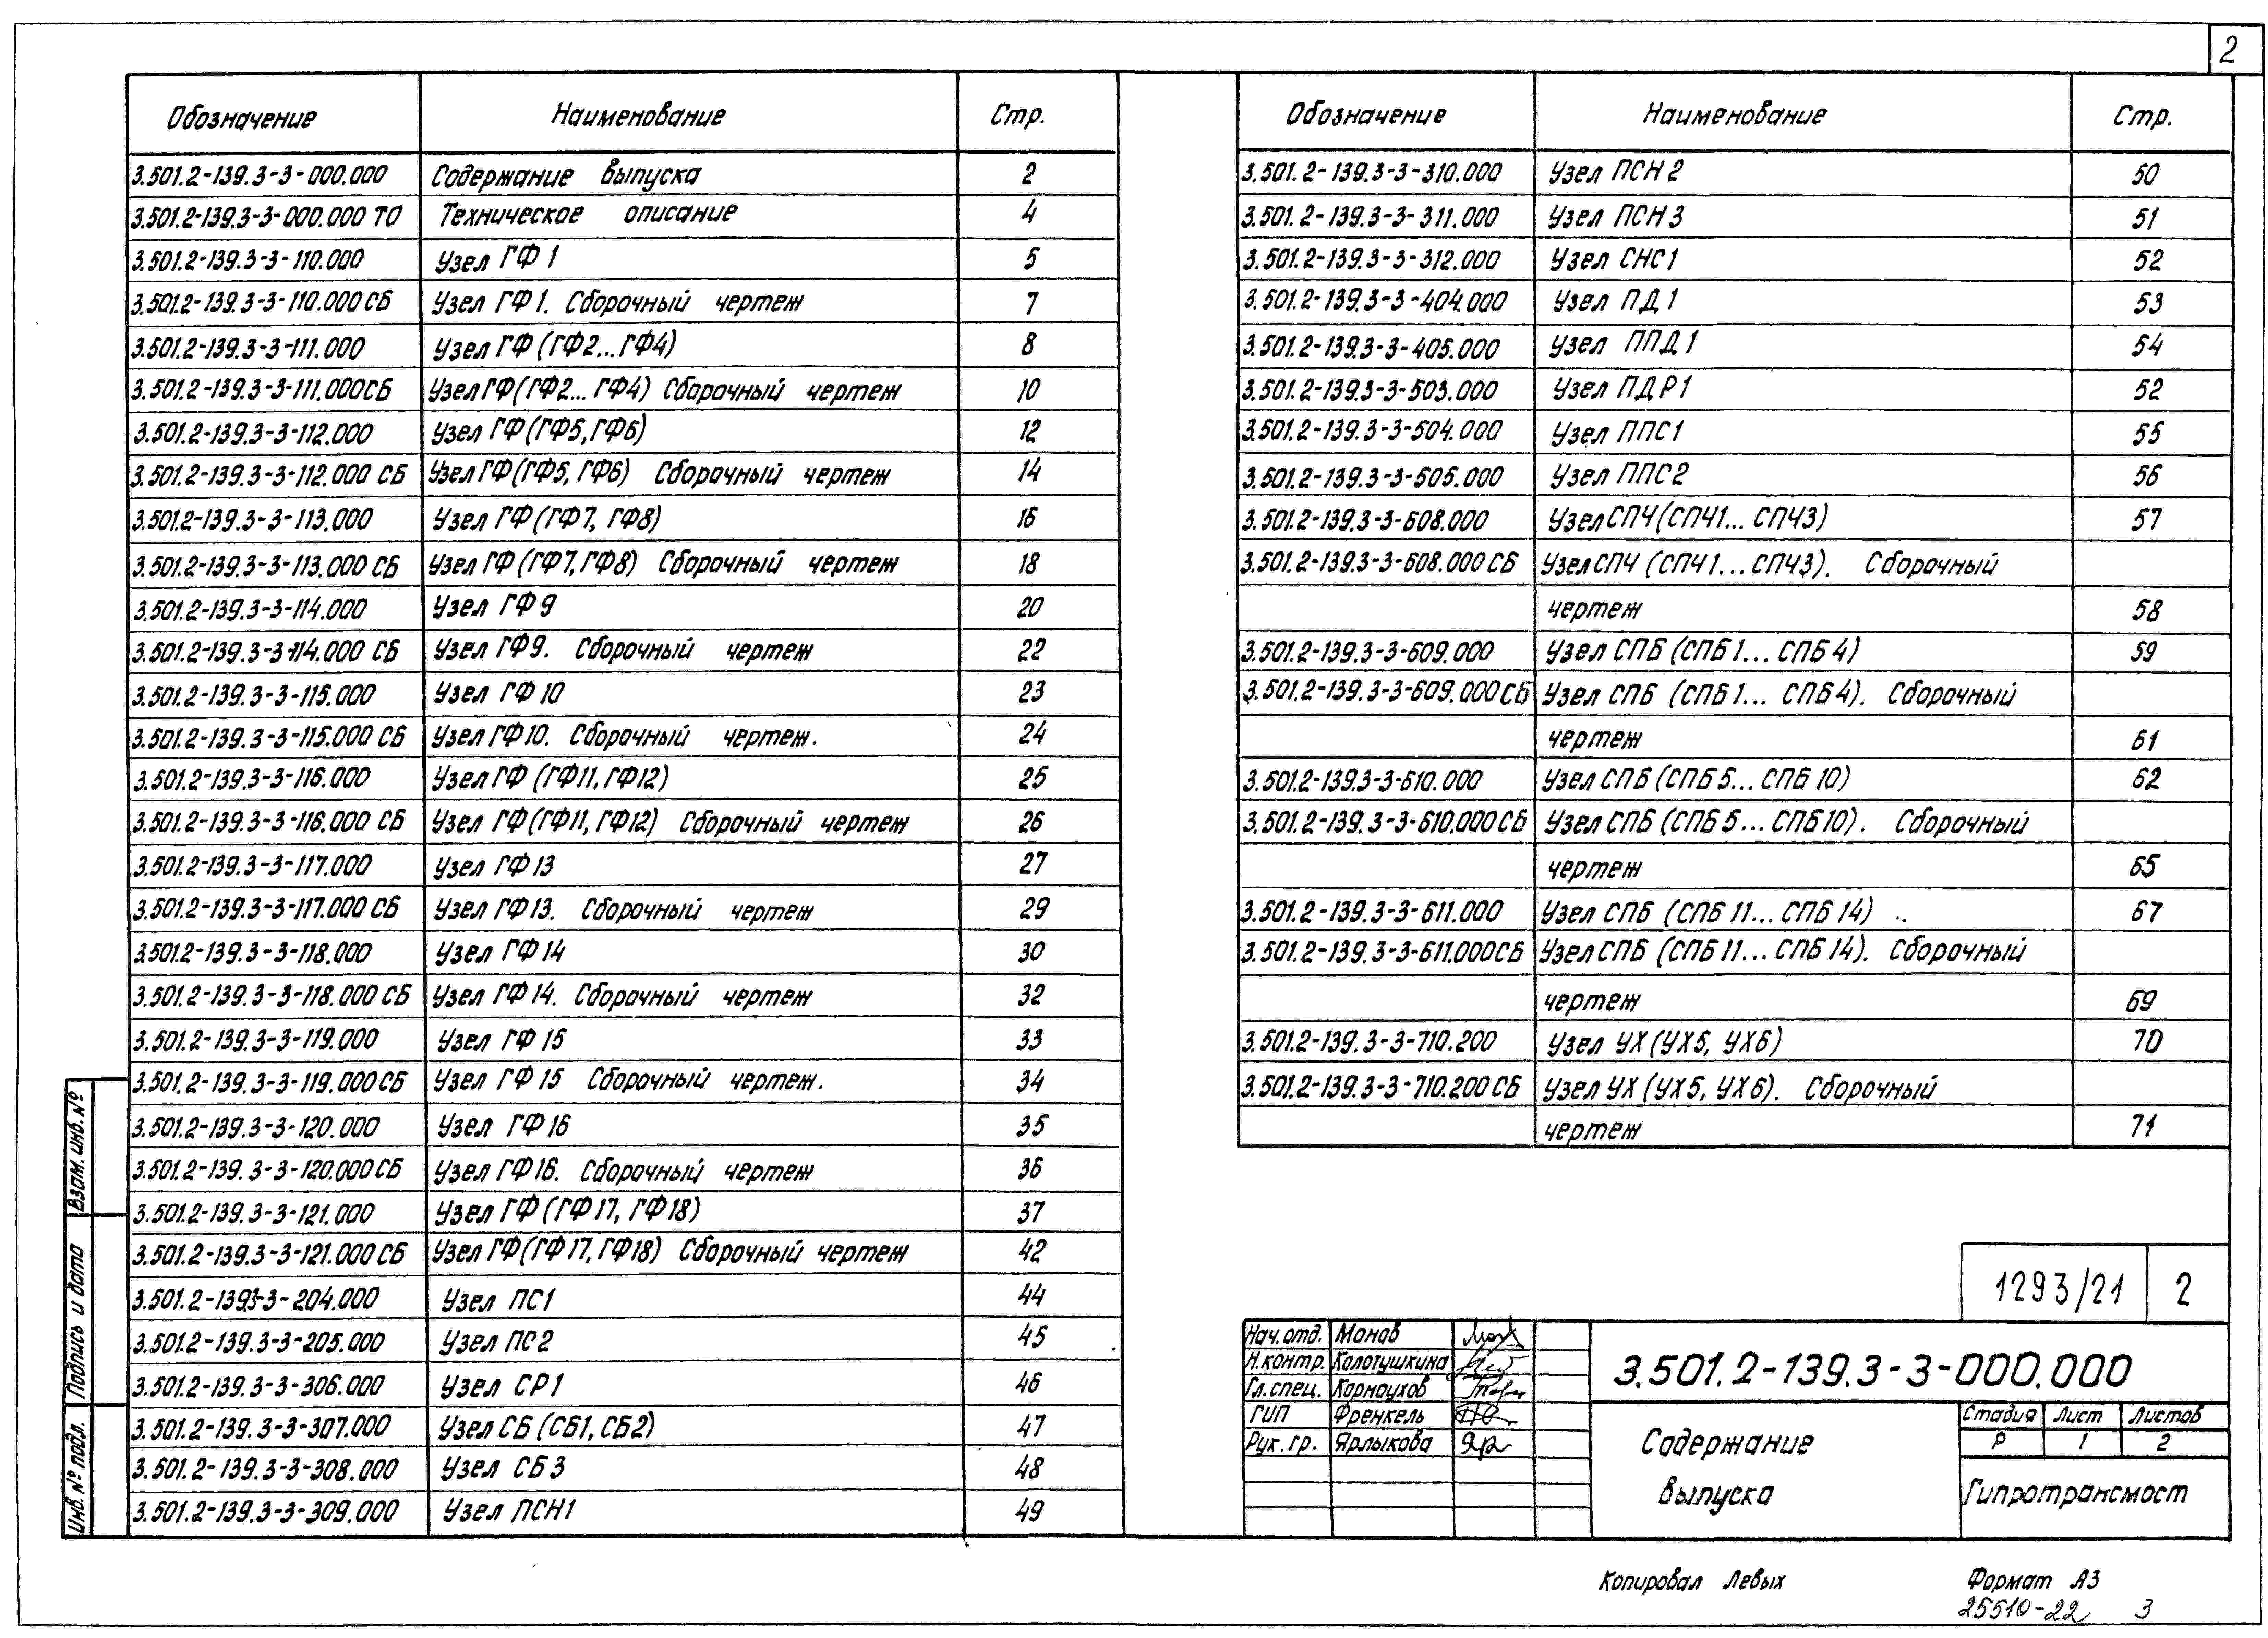 2
Обозначение Наименование Стр.
3.501.2-139.3-3-000.000 Содержание выпуска 2
3.501.2-139.3-3-000.000 ТО Техническое описание 4
3.501.2-139.3-3-110.000 Узел ГФ 1 5
3.501.2-139.3-3-110.000 СБ Узел ГФ 1. Сборочный чертеж 7
3.501.2-139.3-3-111.000 Узел ГФ (ГФ2...ГФ4) 8
3.501.2-139.3-3-111.000СБ Узел ГФ (ГФ2... ГФ4) Сборочный чертеж 10
3.501.2-139.3-3-112.000 Узел ГФ (ГФ5, ГФ6) 12
3.501.2-139.3-3-112.000 СБ Узел ГФ (ГФ5, ГФ6) Сборочный чертеж 14
3.501.2-139.3-3-113.000 Узел ГФ (ГФ7, ГФ8) 16
3.501.2-139.3-3-113.000 СБ Узел ГФ (ГФ7, ГФ8) Сборочный чертеж 18
3.501.2-139.3-3-114.000 Узел ГФ 9 20
3.501.2-139.3-3-114.000 СБ Узел ГФ9. Сборочный чертеж 22
3.501.2-139.3-3-115.000 Узел ГФ 10 23
3.501.2-139.3-3-115.000 СБ Узел ГФ10. Сборочный чертеж. 24
3.501.2-139.3-3-116.000 Узел ГФ (ГФ11, ГФ12) 25
3.501.2-139.3-3-116.000 СБ Узел ГФ (ГФ11, ГФ12) Сборочный чертеж 26
3.501.2-139.3-3-117.000 Узел ГФ 13 27
3.501.2-139.3-3-117.000 СБ Узел ГФ 13. Сборочный чертеж 29
3.501.2-139.3-3-118.000 Узел ГФ 14 30
3.501.2-139.3-3-118.000 СБ Узел ГФ 14. Сборочный чертеж 32
3.501.2-139.3-3-119.000 Узел ГФ 15 33
3.501.2-139.3-3-119.000 СБ Узел ГФ 15 Сборочный чертеж. 34
3.501.2-139.3-3-120.000 Узел ГФ 16 35
3.501.2-139.3-3-120.000 СБ Узел ГФ16. Сборочный чертеж 36
3.501.2-139.3-3-121.000 Узел ГФ (ГФ 17, ГФ 18) 37
3.501.2-139.3-3-121.000 СБ Узел ГФ (ГФ 17, ГФ 18) Сборочный чертеж 42
3.501.2-139.3-3-204.000 Узел ПС1 44
3.501.2-139.3-3-205.000 Узел ПС2 45
3.501.2-139.3-3-306.000 Узел СР1 46
3.501.2-139.3-3-307.000 Узел СБ (СБ1, СБ2) 47
3.501.2-139.3-3-308.000 Узел СБ3 48
3.501.2-139.3-3-309.000 Узел ПСН1 49
Обозначение Наименование Стр.
3.501.2-139.3-3-310.000 Узел ПСН 2 50
3.501.2-139.3-3-311.000 Узел ПСН 3 51
3.501.2-139.3-3-312.000 Узел СНС1 52
3.501.2-139.3-3-404.000 Узел ПД 1 53
3.501.2-139.3-3-405.000 Узел ППД 1 54
3.501.2-139.3-3-503.000 Узел ПДР1 52
3.501.2-139.3-3-504.000 Узел ППС1 55
3.501.2-139.3-3-505.000 Узел ППС2 56
3.501.2-139.3-3-608.000 Узел СПЧ (СПЧ1... СПЧ3) 57
3.501.2-139.3-3-608.000 СБ Узел СПЧ (СПЧ1...СПЧ3). Сборочный
чертеж 58
3.501.2-139.3-3-609.000 Узел СПБ (СПБ 1... СПБ 4) 59
3.501.2-139.3-3-609.000 СБ Узел СПБ (СПБ 1... СПБ 4). Сборочный
чертеж 61
3.501.2-139.3-3-610.000 Узел СПБ (СПБ 5... СПБ 10) 62
3.501.2-139.3-3-610.000 СБ Узел СПБ (СПБ 5... СПБ 10). Сборочный
чертеж 65
3.501.2-139.3-3-611.000 Узел СПБ (СПБ 11... СПБ 14) 67
3.501.2-139.3-3-611.000СБ Узел СПБ (СПБ 11... СПБ 14). Сборочный
чертеж 69
3.501.2-139.3-3-710.200 Узел УХ (УХ5, УХ6) 70
3.501.2-139.3-3-710.200 СБ Узел УХ (УХ5, УХ6). Сборочный
чертеж 71
Взам. инв. №
Подпись и дата
Инв. № подл.
1293/21 2
Нач. отд. Монов
Н. контр. Колотушкина
Гл. спец. Корноухов
ГИП Френкель
Рук. гр. Ярлыкова
3.501.2-139.3-3-000.000
Содержание
выпуска
Стадия Лист Листов
Р 1 2
Гипротрансмост
Копировал Левых Формат А3
25510-22 3